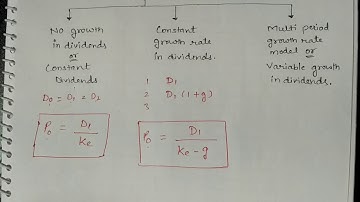 No growth
in dividends
or
Constant
Dividends
D₀ = D₁ = D₂
P₀ = D₁
Ke
Constant
growth rate
in dividends.
1 D₁
2 D₁ (1+g)
3
P₀ = D₁
Ke - g
Multi period
growth rate
model or
Variable growth
in dividends.